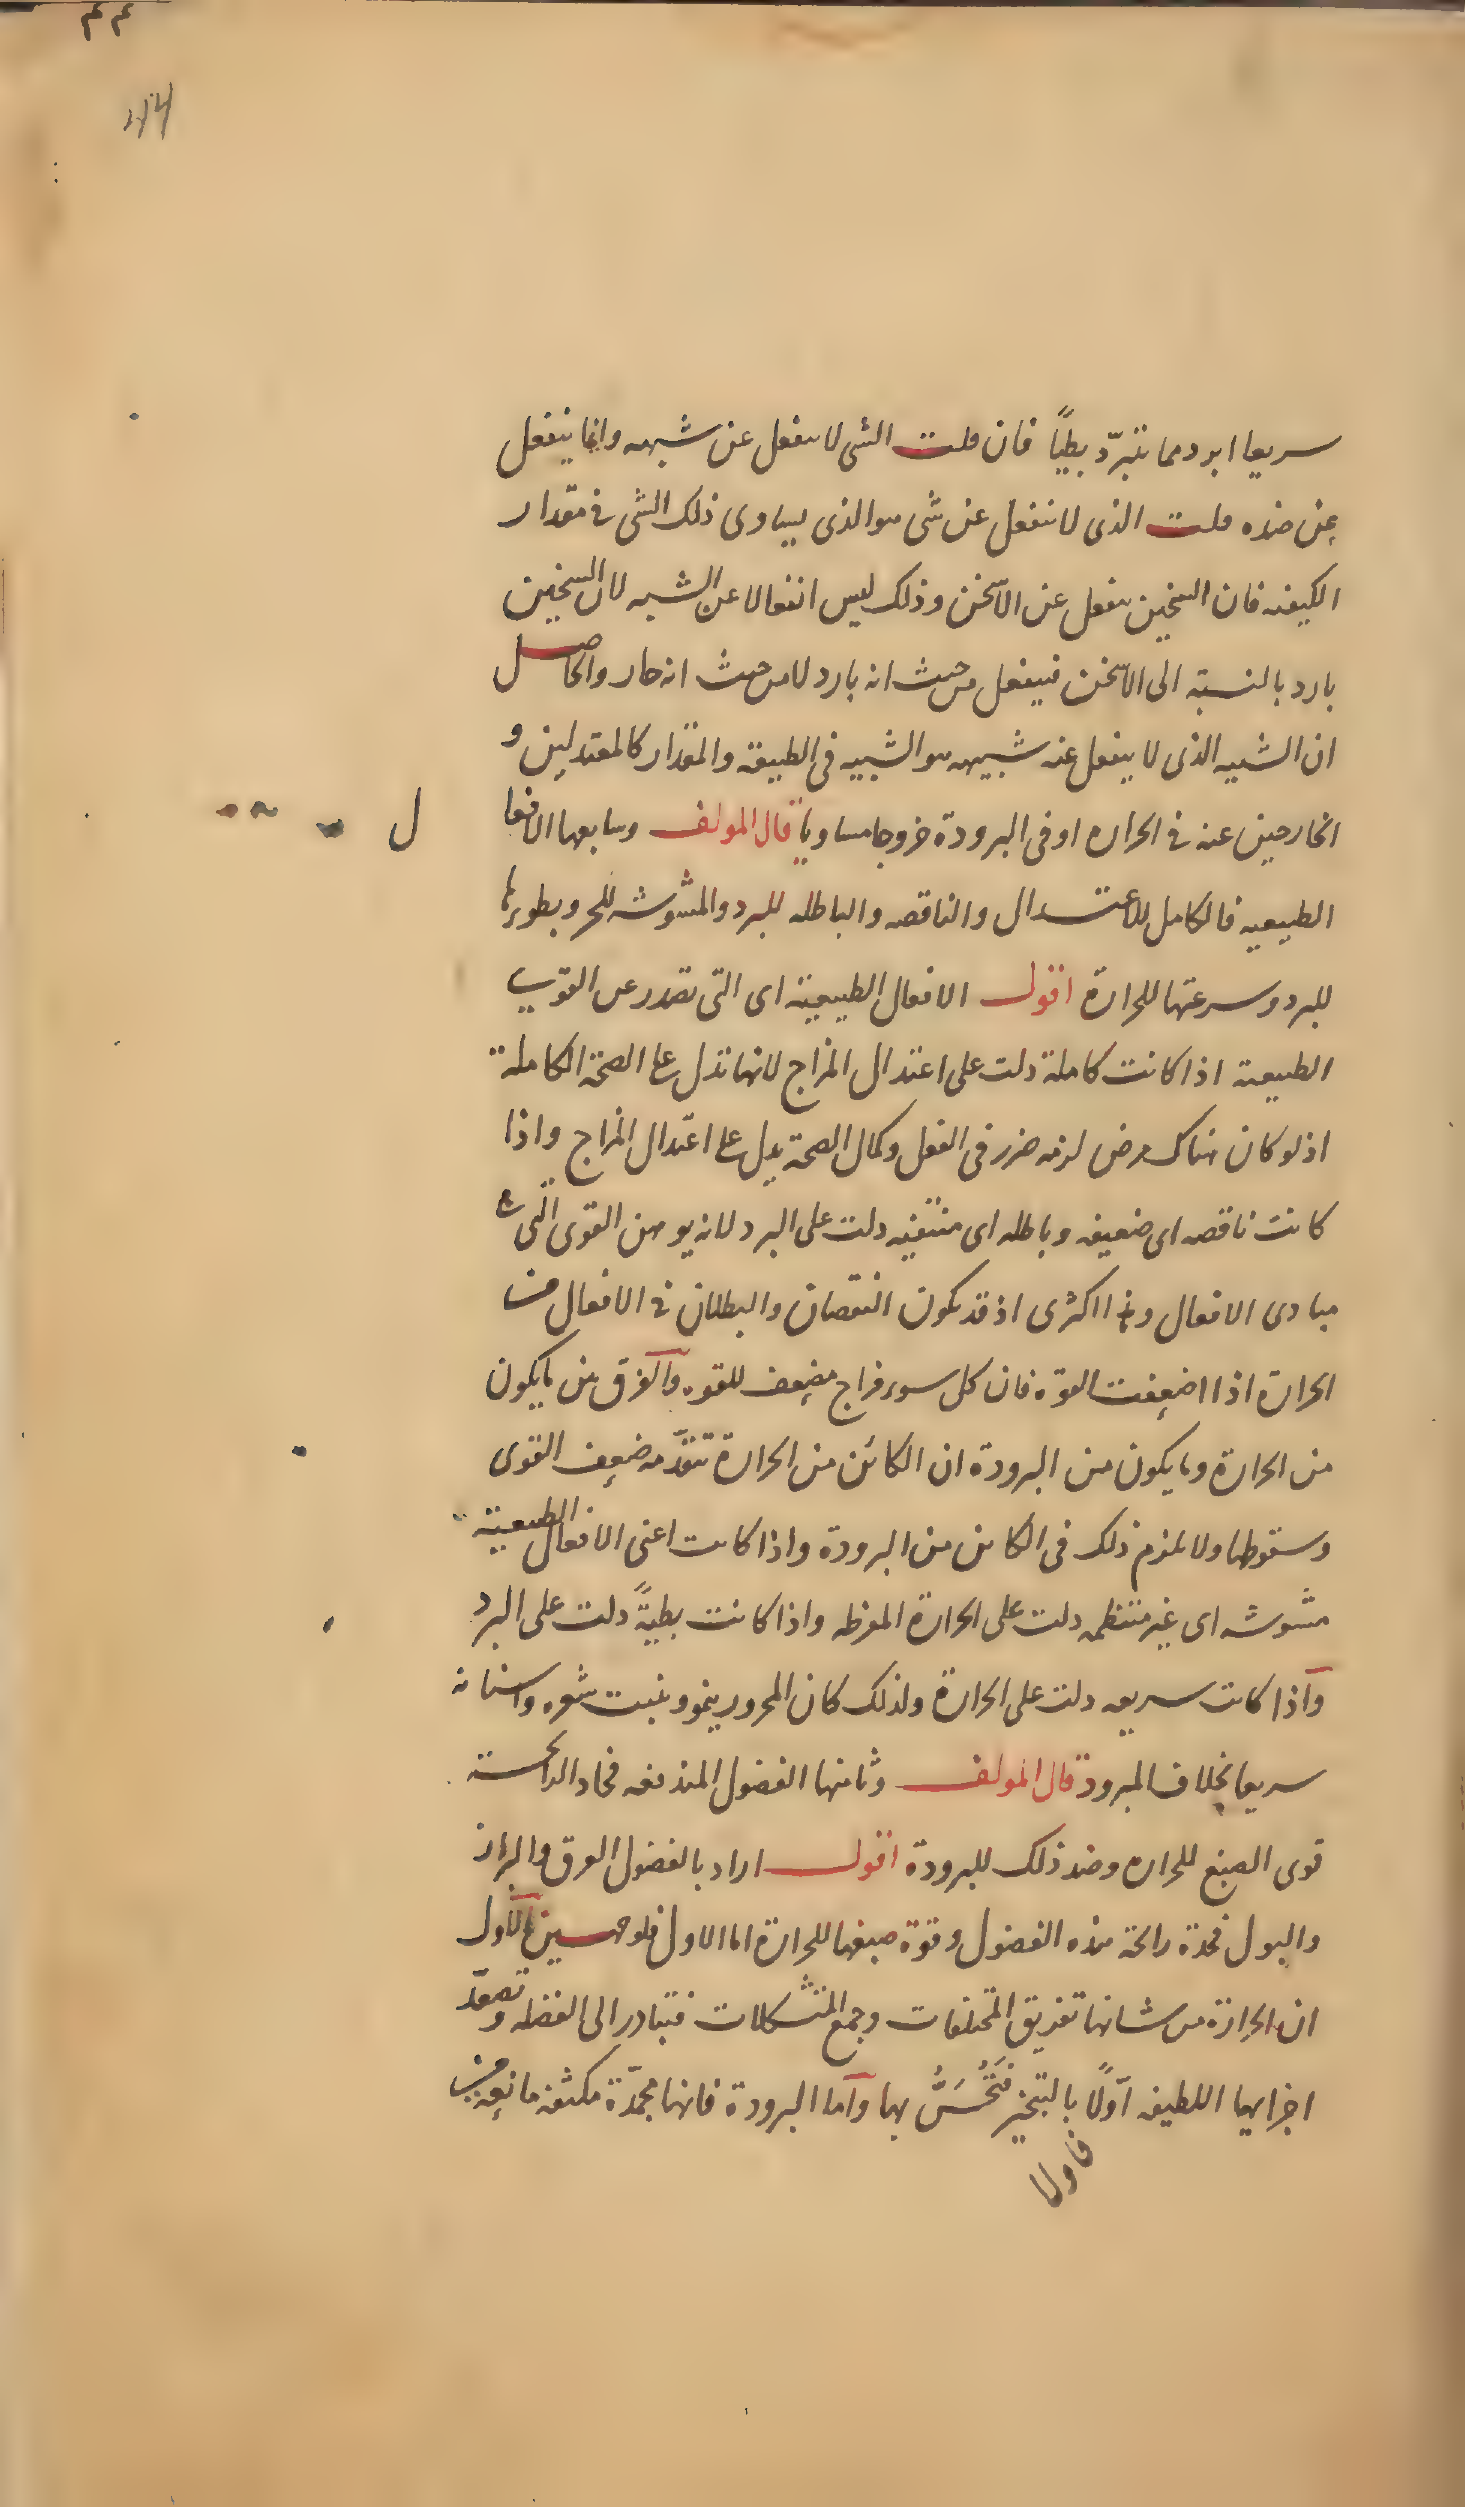 ٤٤
44
سريعا ابرد مما يتبرّد بطيًا فان قلت الشى لا ينفعل عن شبيهه وانما ينفعل
عن ضده قلت الذى لا ينفعل عن شى هو الذى يساوى ذلك الشى فى مقدار
الكيفيه فان السخين ينفعل عن الاسخن وذلك ليس انفعالا عن الشبيه لان السخين
بارد بالنسبة الى الاسخن فينفعل من حيث انه بارد لا من حيث انه حار والحاصل
ان الشبيه الذى لا ينفعل عنه شبيهه هو الشبيه فى الطبيعة والمقدار كالمعتدلين و
الخارجين عنه فى الحراره او فى البرودة خروجا مساويا قال المولف وسابعها الافعا ل
الطبيعيه فالكامل للاعتدال والناقصه والباطله للبرد والمشوشه للحر وبطوءها
للبرد وسرعتها للحرارة اقول الافعال الطبيعية اى التى تصدر عن القوى
الطبيعية اذا كانت كاملة دلت على اعتدال المزاج لانها تدل على الصحة الكاملة
اذ لو كان هناك مرض لزمه ضرر فى الفعل وكمال الصحة يدل على اعتدال المزاج واذا
كانت ناقصه اى ضعيفه وباطله اى منتفيه دلت على البرد لانه يوهن القوى التى هى
مبادى الافعال وهذا اكثرى اذ قد يكون النقصان والبطلان فى الافعال من
الحرارة اذا اضعفت القوّه فان كل سوء مزاج مضعف للقوه والفرق بين ما يكون
من الحرارة وما يكون من البرودة ان الكائن من الحرارة تتقدّمه ضعف القوى
وسقوطها ولا يلزم ذلك فى الكائن من البرودة واذا كانت اعنى الافعال الطبيعية
مشوشه اى غير منتظمه دلت على الحرارة المفرطه واذا كانت بطيةً دلت على البرد
واذا كانت سريعه دلت على الحرارة ولذلك كان المحرور ينمو وينبت شعره واسنانه
سريعا بخلاف المبرود قال المولف وثامنها الفضول المندفعه فحاد الرائحة
قوى الصبغ للحراره وضد ذلك للبرودة اقول اراد بالفضول العرق والبراز
والبول فحدة رائحة هذه الفضول وقوة صبغها للحرارة اما الاول فلوجهين الاول
ان الحرارة من شانها تفريق المختلفات وجمع المتشكلات فتبادر الى الفضله وتصعّد
اجزايها اللطيفه اوّلًا بالتبخير فَتُحَسُّ بها وآما البرودة فانها مجمّدة مكثفه مانعة من
فاولا